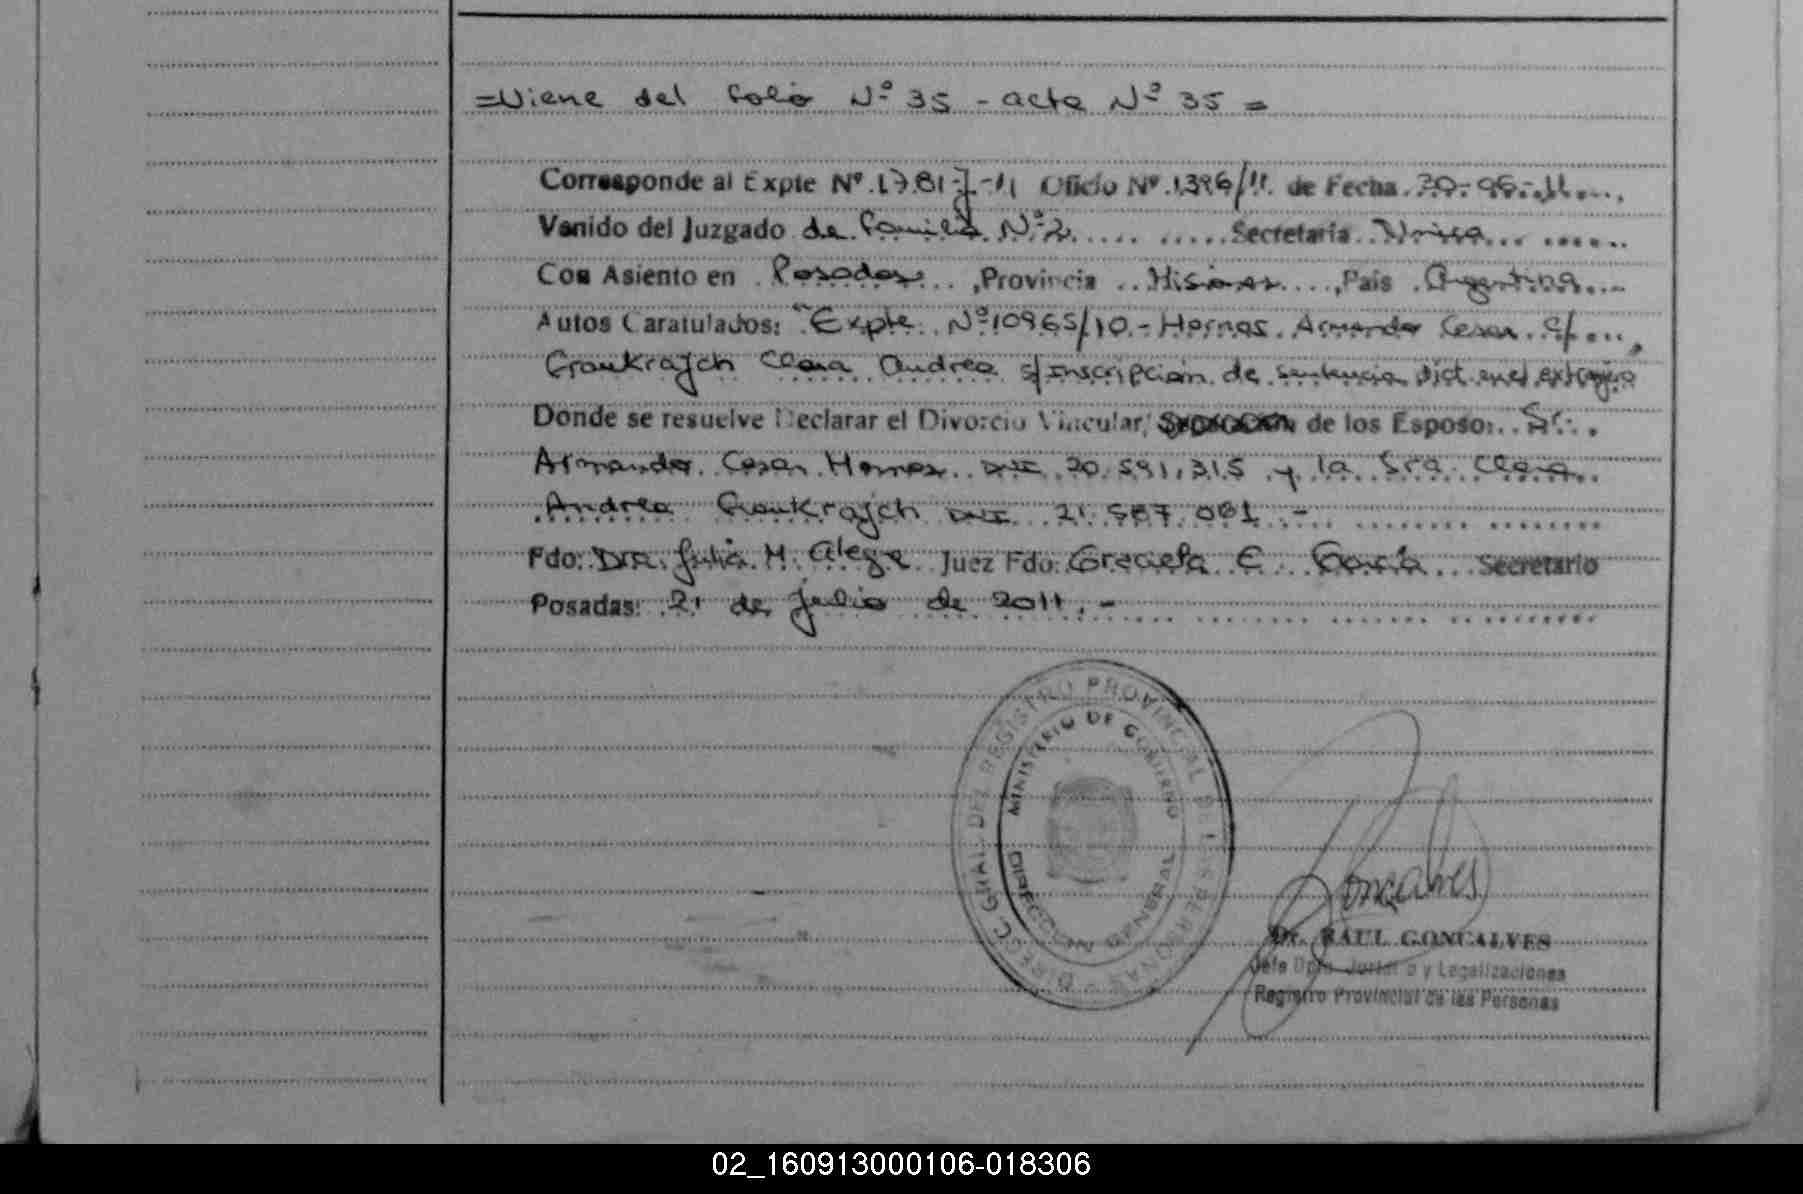 =Viene del folio Nº 35 - acta Nº 35 =
Corresponde al Expte Nº 1781-J-11 Oficio Nº 1396/11 de Fecha 30-06-11
Venido del Juzgado de familia Nº 2 Secretaria Unica
Con Asiento en Posadas, Provincia Misiones, País Argentina
Autos Caratulados: "Expte. Nº 10965/10.- Hornos Armando Cesar c/
Graukrajch Clara Andrea s/ Inscripción de sentencia dict. en el extrajero
Donde se resuelve Declarar el Divorcio Vincular, de los Esposo: Sr.
Armando Cesar DNI 20.591.315 y la Sra. Clara
Andrea Graukrajch DNI 21.587.081.-
Fdo: Dra. Julia M. Alegre Juez Fdo: Graciela E. García Secretario
Posadas: 21 de julio de 2011.-
DIRECC. GRAL. DEL REGISTRO PROVINCIAL DE LAS PERSONAS
MINISTERIO DE GOBIERNO
DIRECCION GENERAL
Goncalves
Dr. RAUL GONCALVES
Jefe Dpto. y Legalizaciones
Registro Provincial de las Personas
02_160913000106-018306